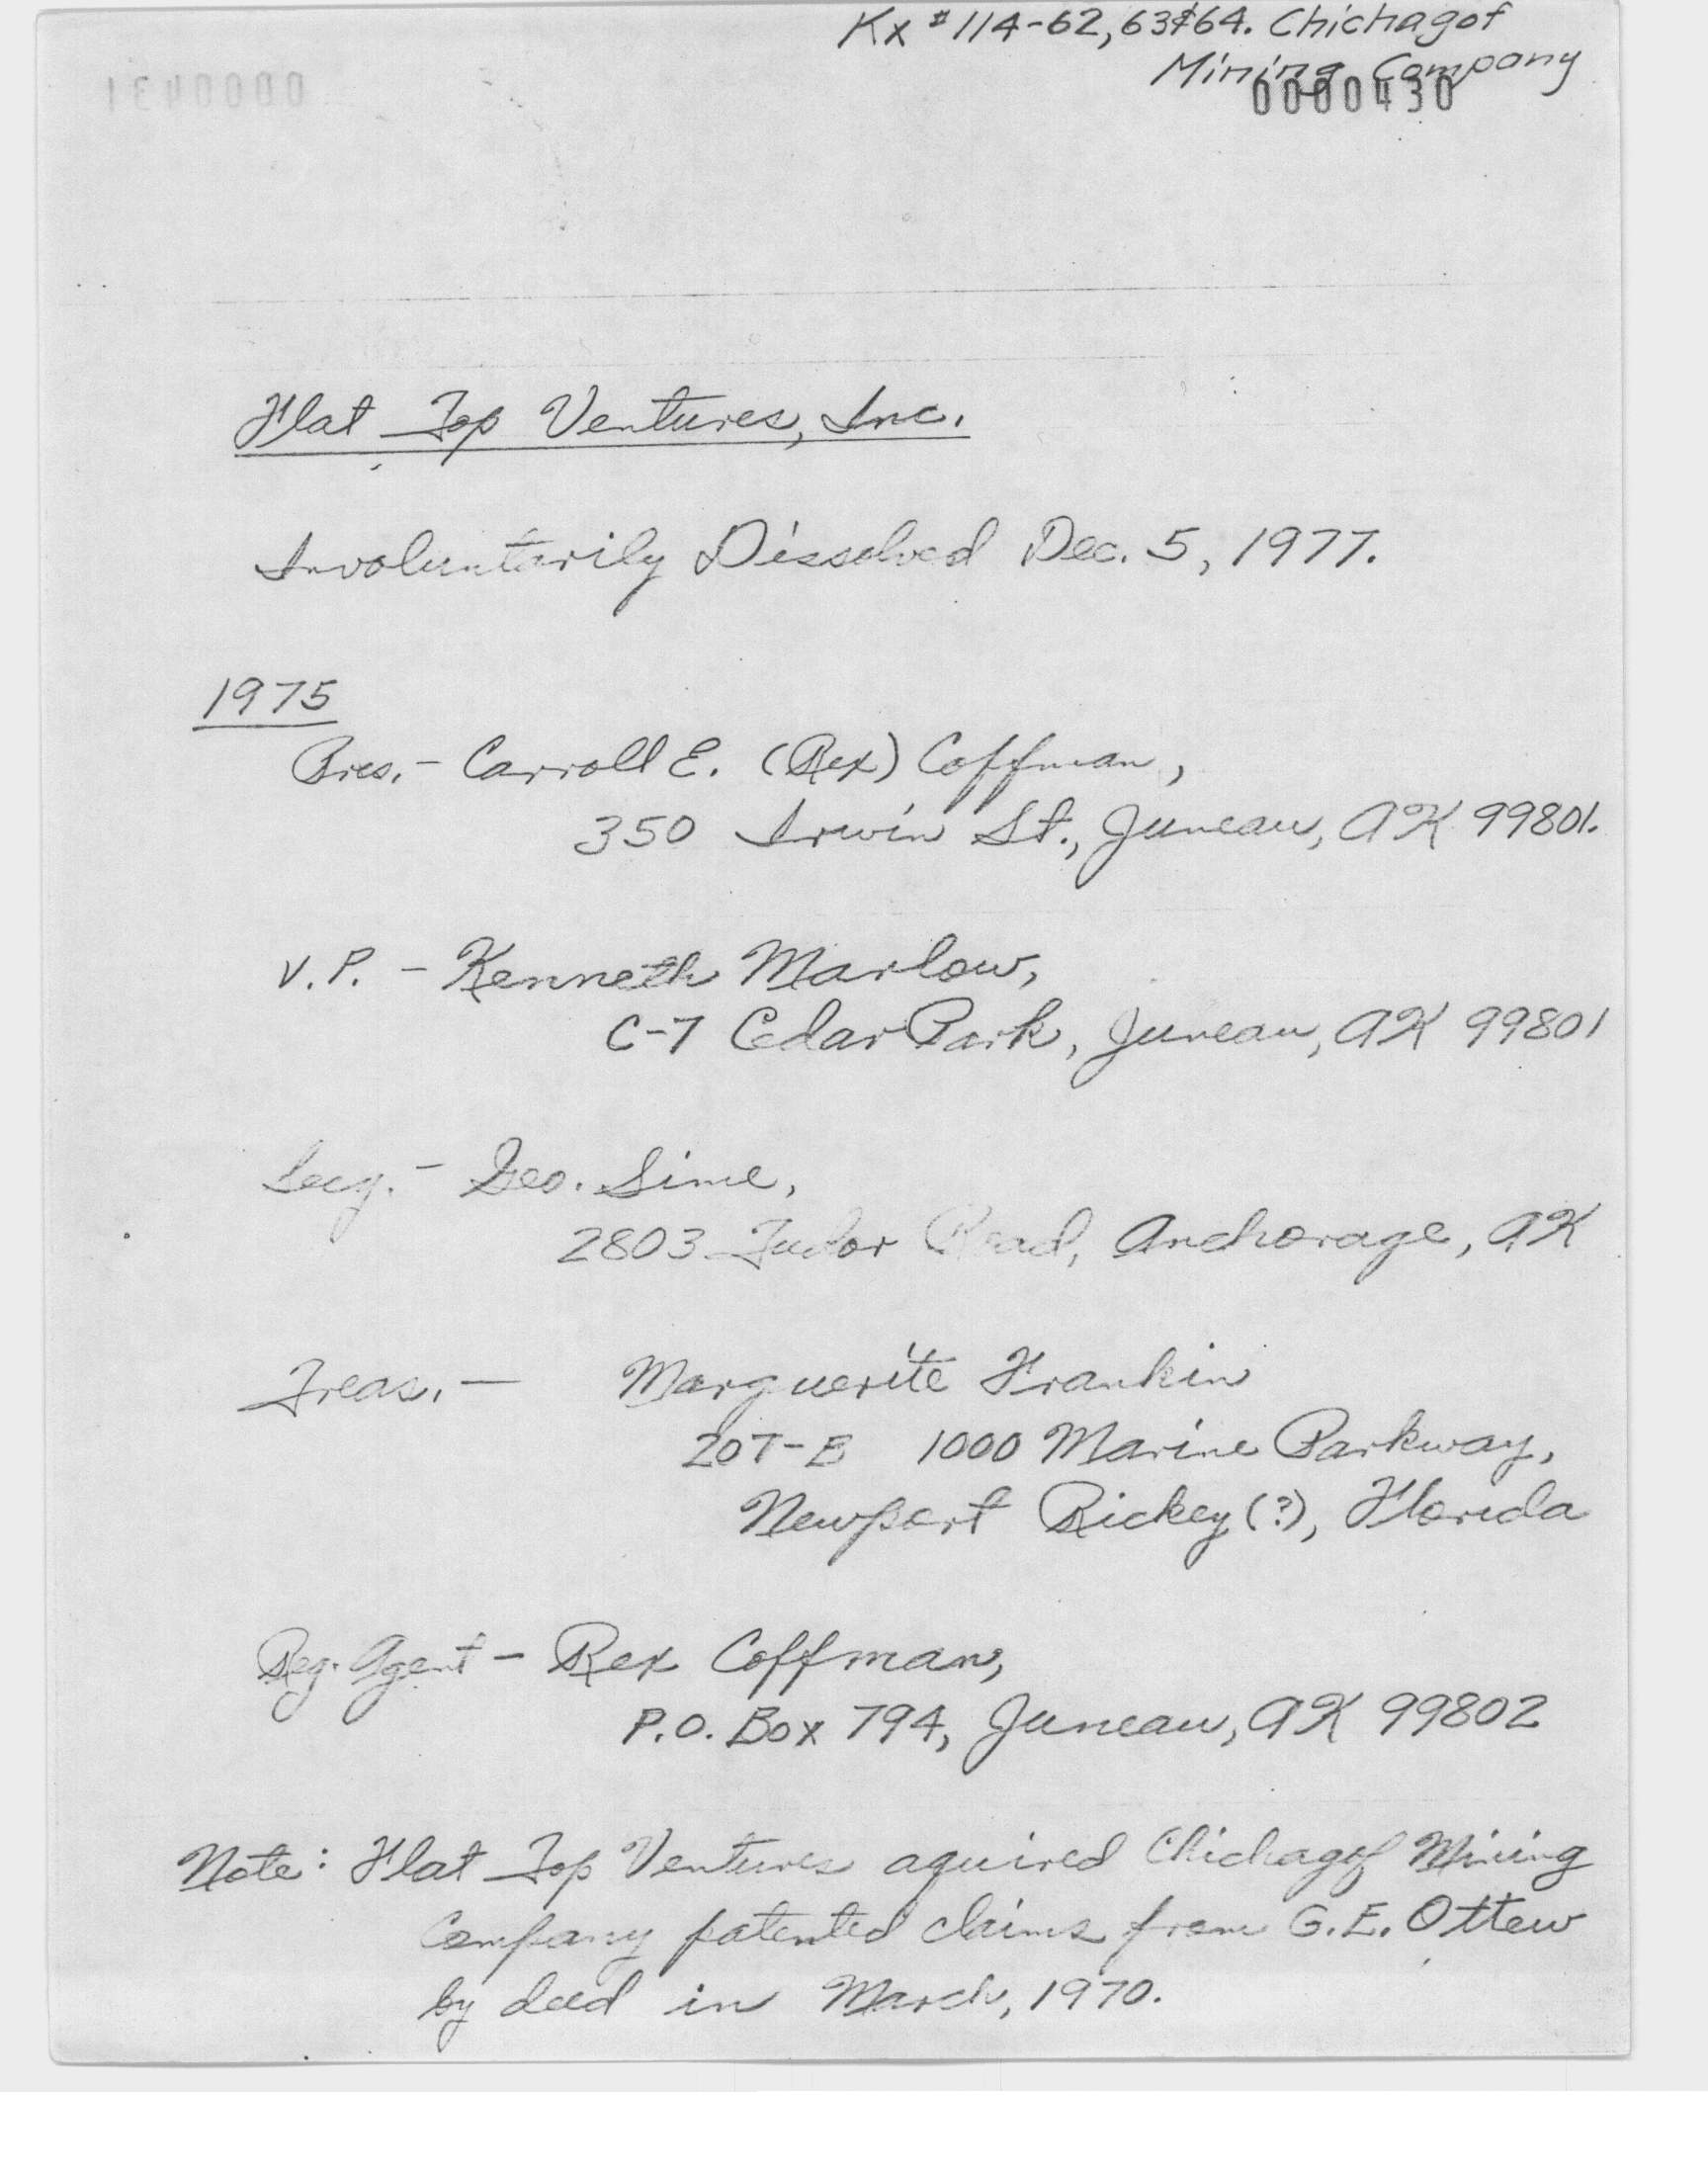 Kx #114-62,63&64. Chichagof
Mining Company
0000430
0000431
Flat Top Ventures, Inc.
Involuntarily Dissolved Dec. 5, 1977.
1975
Pres. - Carroll E. (Rex) Coffman,
350 Irwin St., Juneau, AK 99801.
V.P. - Kenneth Marlow,
C-7 Cedar Park, Juneau, AK 99801
Secy. - Geo. Sime,
2803 Tudor Road, Anchorage, AK
Treas. - Marguerite Frankin
207-B 1000 Marine Parkway,
Newport Rickey (?), Florida
Reg. Agent - Rex Coffman,
P.O. Box 794, Juneau, AK 99802
Note: Flat Top Ventures aquired Chichagof Mining
Company patented claims from G.E. Ottew
by deed in March, 1970.